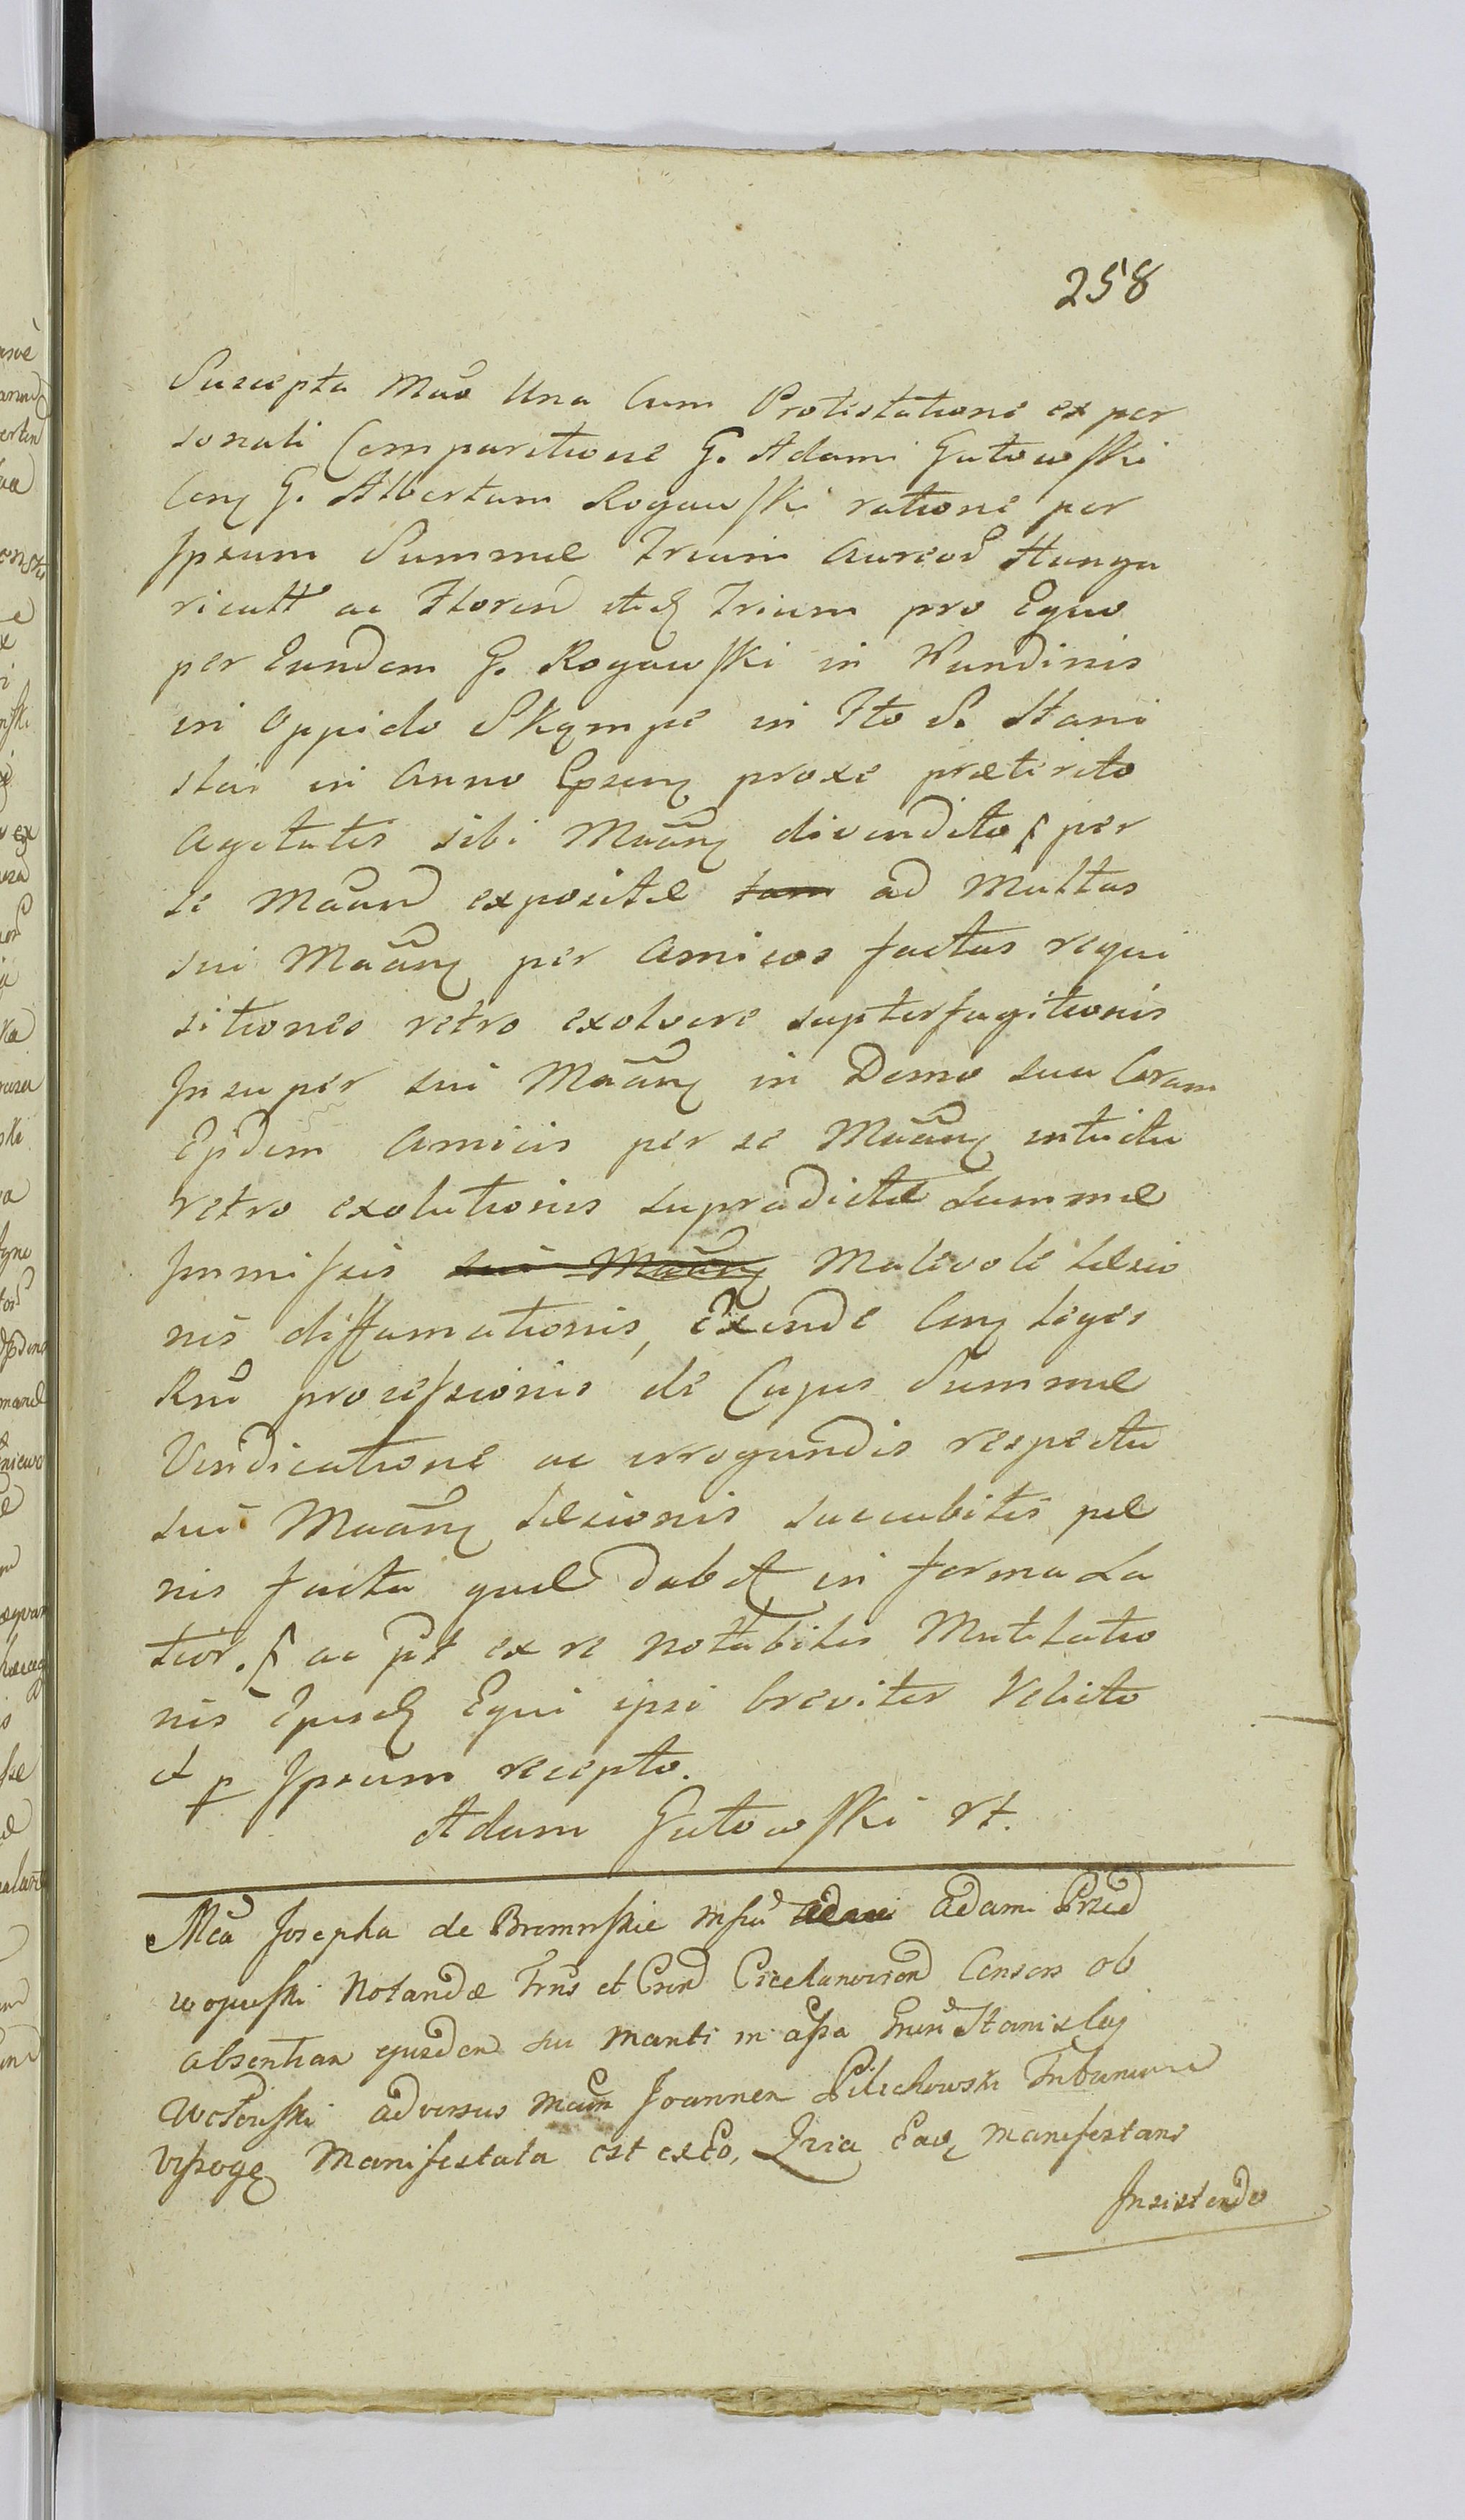 258
Suscepta Mão Una Cum Protestatione ex per
sonali Comparitione G. Adami Gutowski
Cong G. Albertum Rogawski ratione per
Ipsum Summæ Trium Aureor Hunga
ricall ac Floren itidq Trium pro Equo
per Eundem G. Rogawski in Nundinis
in Oppido Skępe in Fto S. Stani
slai in Anno Epeunq proxe præterito
agitatis sibi Mãanq divendito per
se Mãan expositæ tam ad Multas
sui Mãanq per Amicos factas requi
sitiones retro exolvere supterfugitionis
Insuper sui Mãanq in Domo sua Coram
Ejsdem Amicis per se Mãanq intuitu
retro exolutionis supradictæ Summæ
immissis sui Mãanq Malevole læsio
nis diffamationis, exinde Cunq leges
Rni processionis de Cujus Summæ
Vindicatione ac irrogandis respectu
sui Mãanq læsionis succubitis pæ
nis facta quæ dabit in forma La
tior. ac pt ex re notabilis Mutilatio
nis Ejusdq Equi ipsi breviter relicto
et p Ipsum recepto.
Adam Gutowski rt.
Mca Josepha de Bromirskie Adami Adami Przed
wojewski Notandæ Trris et Consors ob
absentiam ejusdem sui Mariti in
adversus Mcum Joannem Pilichowski Tribunum
Wyszog Manifestata est exEo, Qzia Eadq Manifestans
Insistendo